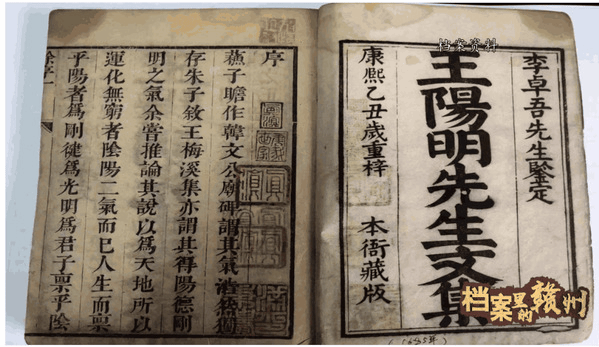 档案资料
李卓吾先生鑒定
王陽明先生文集
康熙乙丑歲重梓 本衙藏版
序
蘓子瞻作韓文公廟碑謂其氣浩然獨
存朱子敘王梅溪集亦謂其得陽德剛
明之氣余嘗推論其說以為天地所以
運化無窮者陰陽二氣而已人生而稟
乎陽者為剛健為光明為君子稟乎陰
档案里的赣州